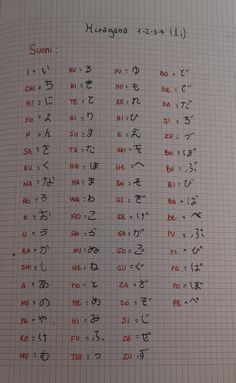 Hiragana 1-2-3-4 (Li)
Suoni:
I = い RU = る YU = ゆ DO = ど
CHI = ち KI = き MO = も DE = で
NI = に TE = て RE = れ DA = だ
YO = よ RI = り HI = ひ JI = ぢ
N = ん SU = す E = え ZU = づ
SA = さ TA = た WO = を BO = ぼ
KU = く HO = ほ HE = へ BU = ぶ
NA = な MA = ま SO = そ BI = び
RO = ろ WA = わ GI = ぎ BA = ば
O = お KO = こ GE = げ BE = べ
U = う RA = ら GA = が PU = ぷ
KA = か NU = ぬ GO = ご PI = ぴ
SHI = し NE = ね GU = ぐ PA = ぱ
A = あ TO = と ZA = ざ PO = ぽ
NO = の ME = め ZO = ぞ PE = ぺ
YA = や MI = み JI = じ
KE = け FU = ふ ZE = ぜ
MU = む TSU = つ ZU = ず